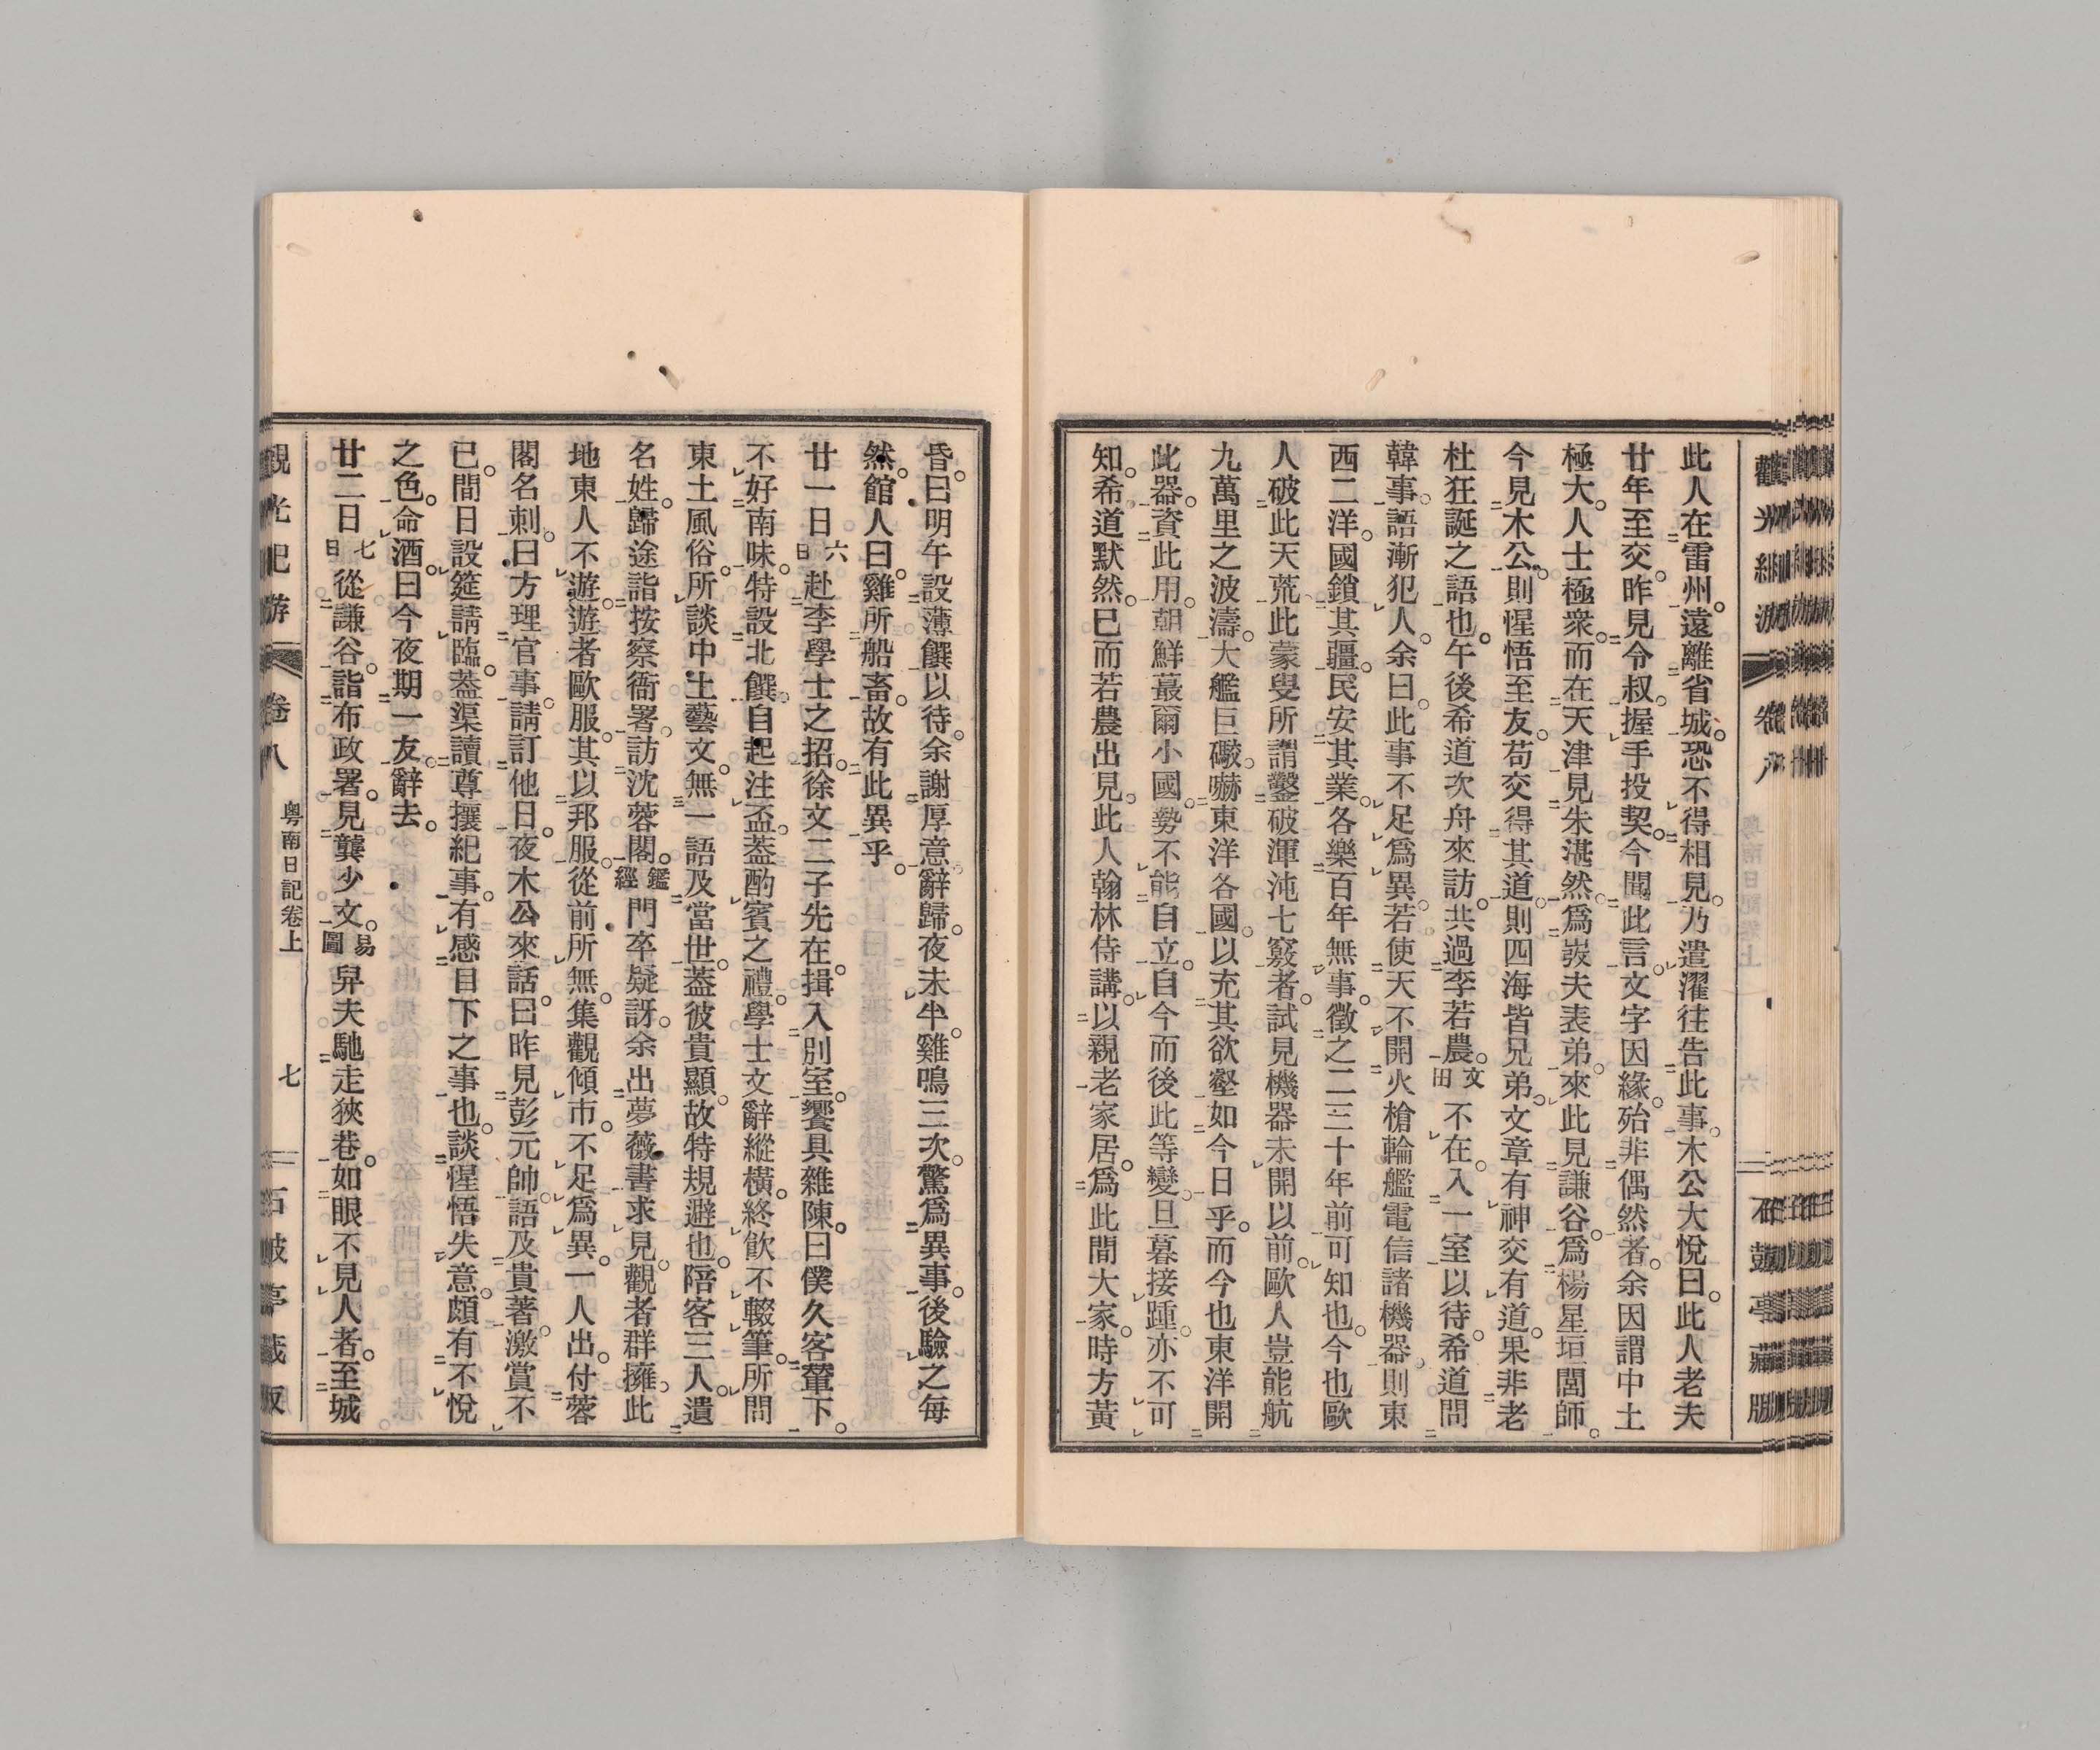 此人在雷州。遠離省城。恐不得相見。乃遣濯往告此事。木公大悅曰。此人老夫
廿年至交。昨見令叔。握手投契。今聞此言。文字因緣。殆非偶然者。余因謂中土
極大。人士極衆。而在天津見朱湛然。爲炭夫表弟。來此見謙谷。爲楊星垣閨師。
今見木公。則惺悟至友。苟交得其道。則四海皆兄弟。文章有神交有道。果非老
杜狂誕之語也。午後希道次舟來訪。共過李若農。文田不在。入一室以待。希道問
韓事。語漸犯人。余曰。此事不足爲異。若使天不開火槍輪艦電信諸機器。則東
西二洋。國鎖其疆。民安其業。各樂百年無事。徵之二三十年前可知也。今也歐
人破此天荒。此蒙叟所謂鑿破渾沌七竅者。試見機器未開以前。歐人豈能航
九萬里之波濤。大艦巨礮。嚇東洋各國。以充其欲壑如今日乎。而今也東洋開
此器。資此用。朝鮮蕞爾小國。勢不能自立。自今而後此等變。旦暮接踵。亦不可
知。希道默然。已而若農出見。此人翰林侍講。以親老家居。爲此間大家。時方黃
觀光紀游 卷八 粵南日記卷上 六
昏。曰明午設薄饌以待。余謝厚意辭歸。夜未半。雞鳴三次。驚爲異事。後驗之每
然。館人曰。雞所船畜。故有此異乎。
廿一日六日赴李學士之招。徐文二子先在。揖入別室。饗具雜陳。曰僕久客輦下。
不好南味。特設北饌。自起注盃。蓋酌賓之禮。學士文辭縱橫。終飲不輟筆。所問
東土風俗。所談中土藝文。無一語及當世。蓋彼貴顯。故特規避也。陪客三人。遺
名姓。歸途詣按察衙署。訪沈蓉閣。鑑經門卒疑訝。余出夢薇書求見。觀者群擁。此
地東人不遊。遊者歐服。其以邦服。從前所無。集觀傾市。不足爲異。一人出。付蓉
閣名刺。曰方理官事。請訂他日。夜木公來話。曰昨見彭元帥。語及貴著。激賞不
已。間日設筵請臨。蓋渠讀尊攘紀事。有感目下之事也。談惺悟失意。頗有不悅
之色。命酒。曰今夜期一友。辭去。
廿二日七日從謙谷。詣布政署。見龔少文。易圖舁夫馳走狹巷。如眼不見人者。至城
觀光紀游 卷八 粵南日記卷上 七 石鼓亭藏版